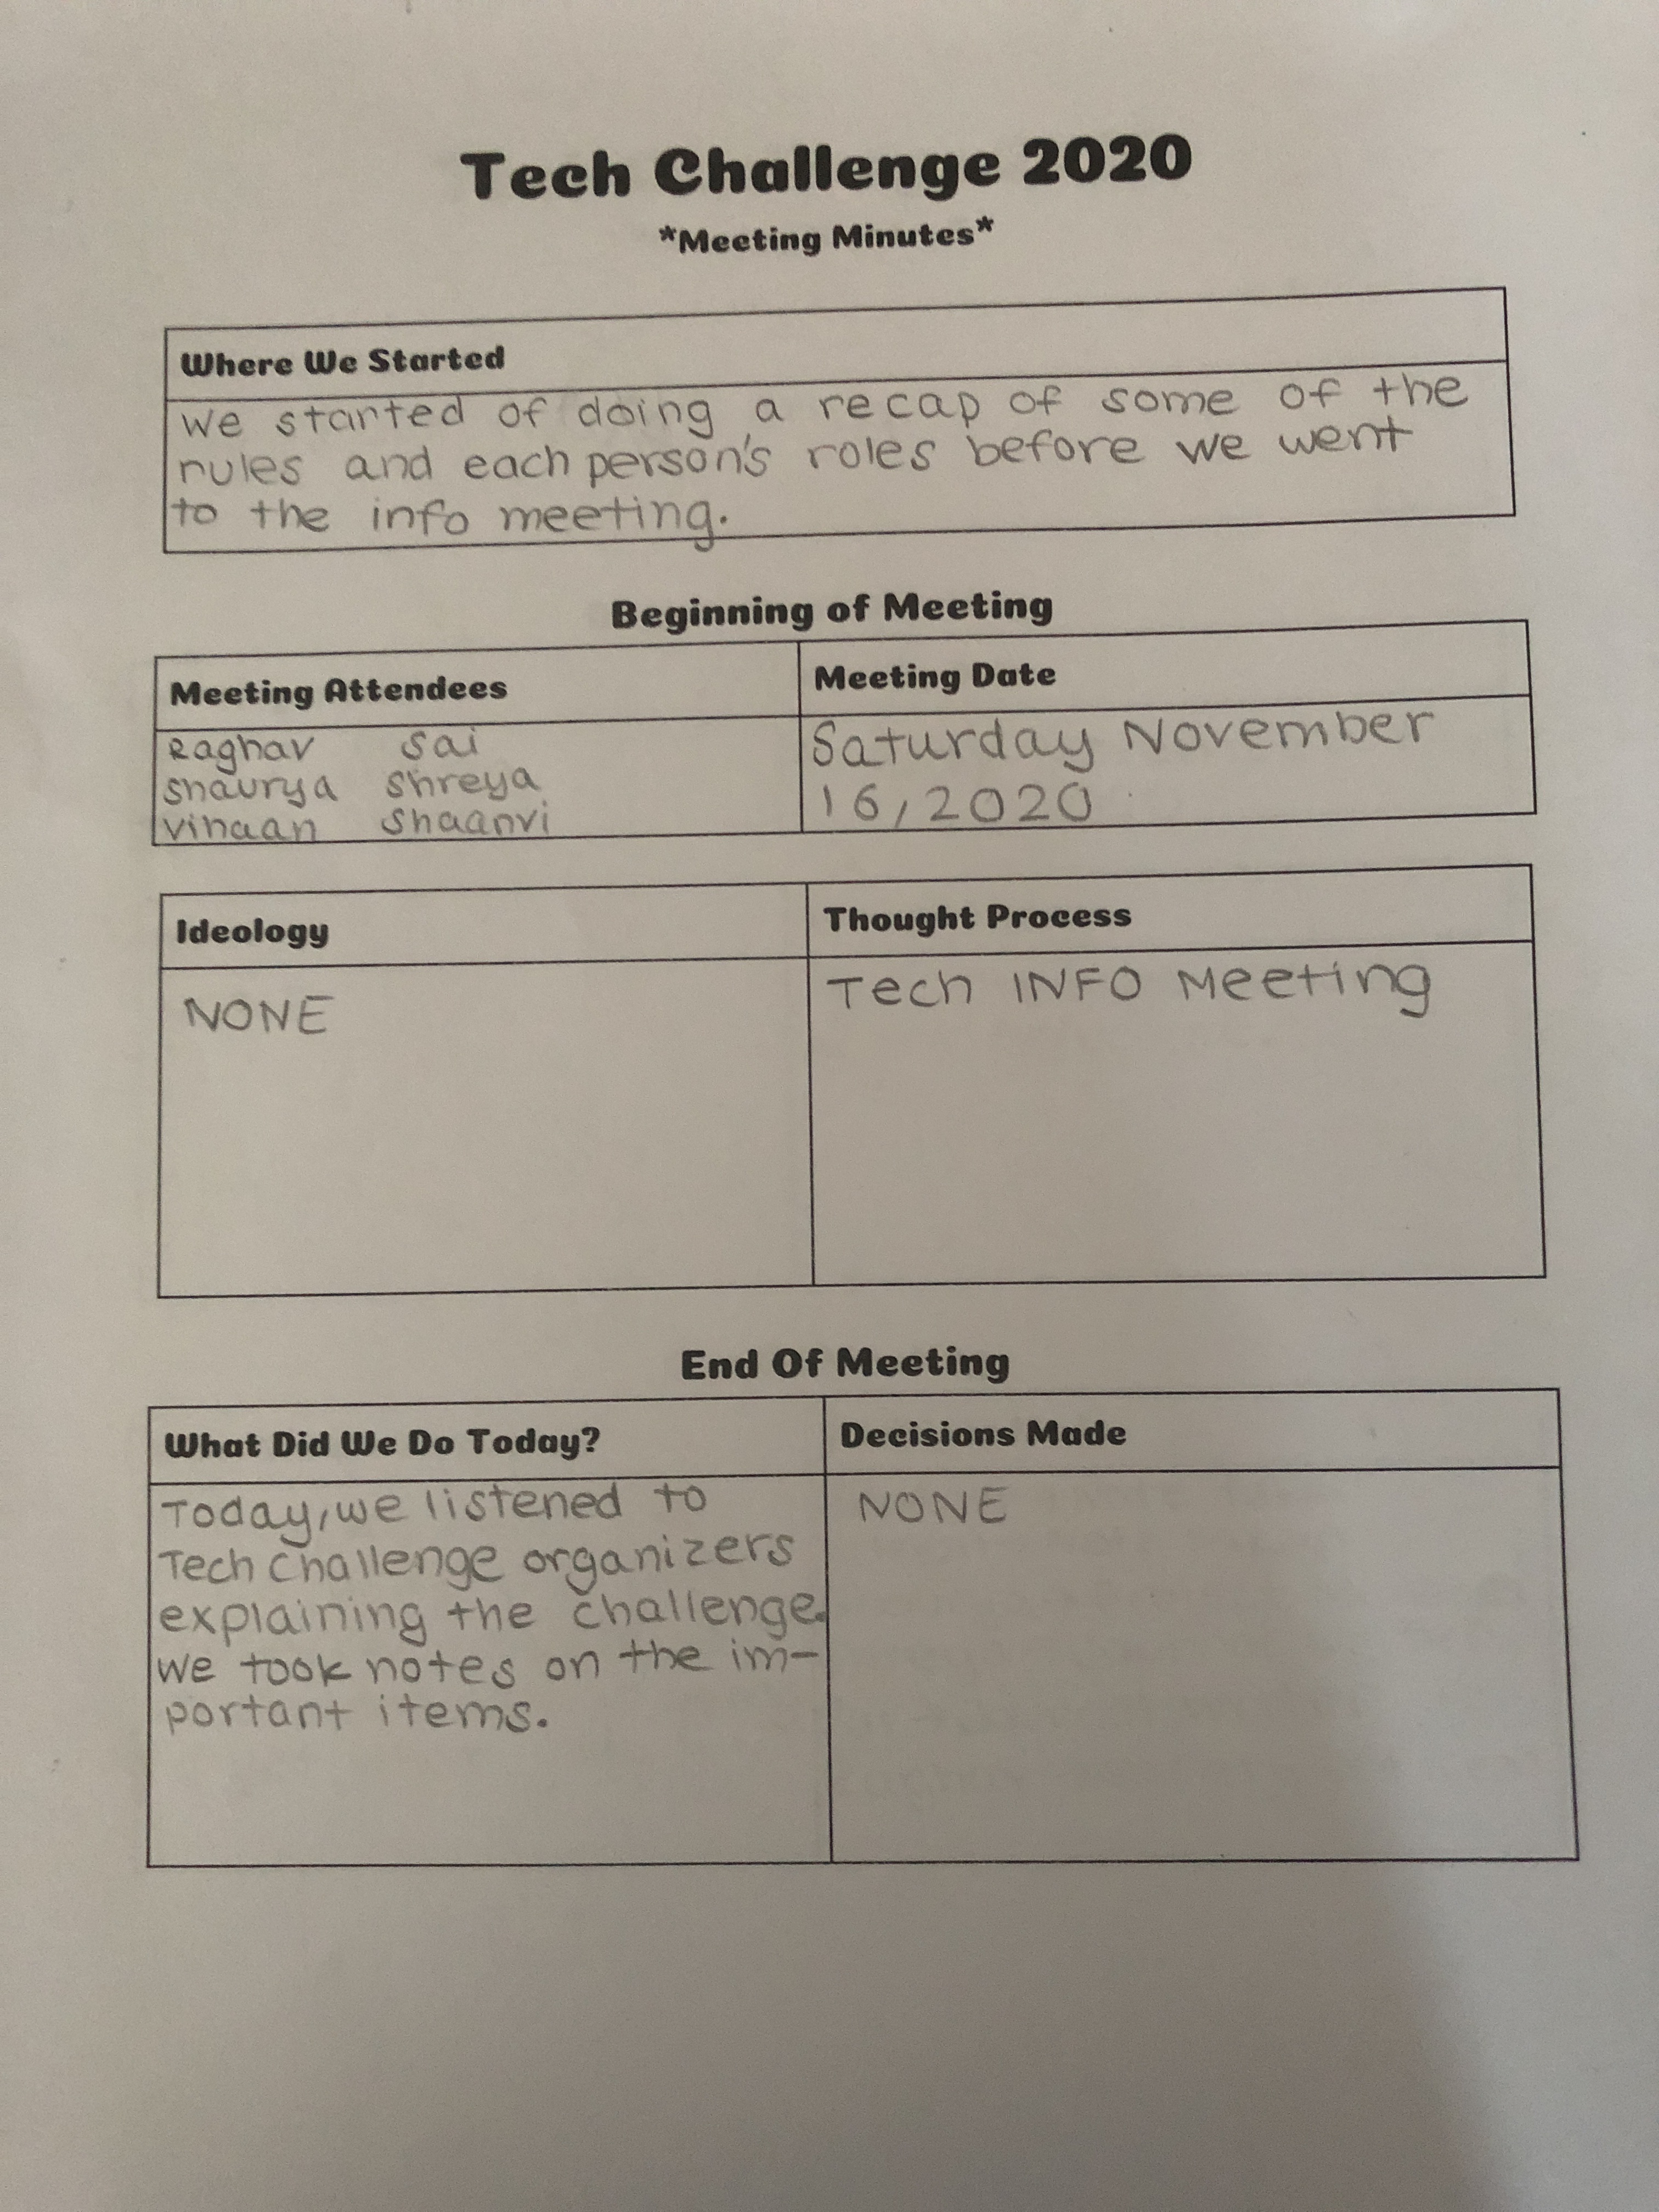 Tech Challenge 2020
*Meeting Minutes*
Where We Started
We started of doing a recap of some of the
rules and each person's roles before we went
to the info meeting.
Beginning of Meeting
Meeting Attendees
Raghav Sai
Shaurya Shreya
Vihaan Shaanvi
Meeting Date
Saturday November
16, 2020
Ideology
NONE
Thought Process
Tech INFO Meeting
End Of Meeting
What Did We Do Today?
Today, we listened to
Tech Challenge organizers
explaining the challenge.
we took notes on the im-
portant items.
Decisions Made
NONE